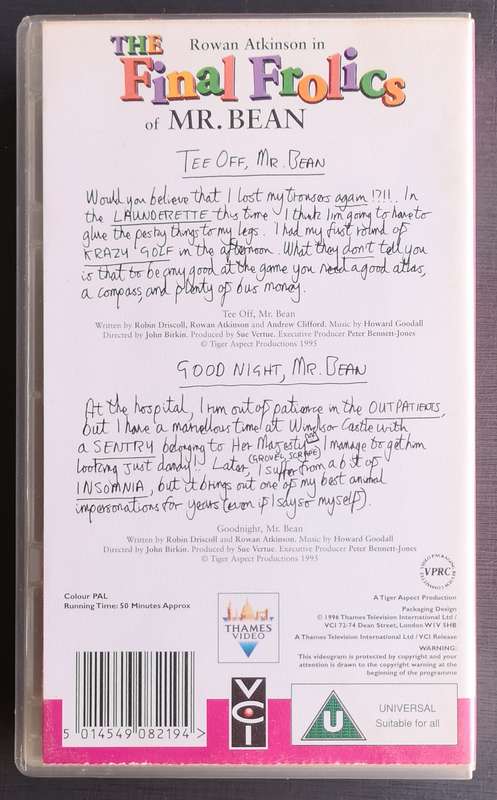 THE
Rowan Atkinson in
Final Frolics
of MR. BEAN
TEE OFF, MR. BEAN
Would you believe that I lost my trousers again !?!!. In
the LAUNDERETTE this time. I think I'm going to have to
glue the pesky things to my legs. I had my first round of
KRAZY GOLF in the afternoon. What they don't tell you
is that to be any good at the game you need a good atlas,
a compass, and plenty of bus money.
Tee Off, Mr. Bean
Written by Robin Driscoll, Rowan Atkinson and Andrew Clifford. Music by Howard Goodall
Directed by John Birkin. Produced by Sue Vertue. Executive Producer Peter Bennett-Jones
© Tiger Aspect Productions 1995
GOOD NIGHT, MR. BEAN
At the hospital, I run out of patience in the OUTPATIENTS,
but I have a marvellous time at Windsor Castle with
a SENTRY belonging to Her Majesty (GROVEL, SCRAPE) I manage to get him
looking just dandy!! Later, I suffer from a bit of
INSOMNIA, but it brings out one of my best animal
impersonations for years (even if I say so myself).
Goodnight, Mr. Bean
Written by Robin Driscoll and Rowan Atkinson. Music by Howard Goodall
Directed by John Birkin. Produced by Sue Vertue. Executive Producer Peter Bennett-Jones
© Tiger Aspect Productions 1995
VPRC
Colour PAL
Running Time: 50 Minutes Approx
THAMES
VIDEO
A Tiger Aspect Production
Packaging Design
© 1996 Thames Television International Ltd /
VCI 72-74 Dean Street, London W1V 5HB
A Thames Television International Ltd / VCI Release
WARNING:
This videogram is protected by copyright and your
attention is drawn to the copyright warning at the
beginning of the programme
5 014549 082194 >
VCI
U
UNIVERSAL
Suitable for all